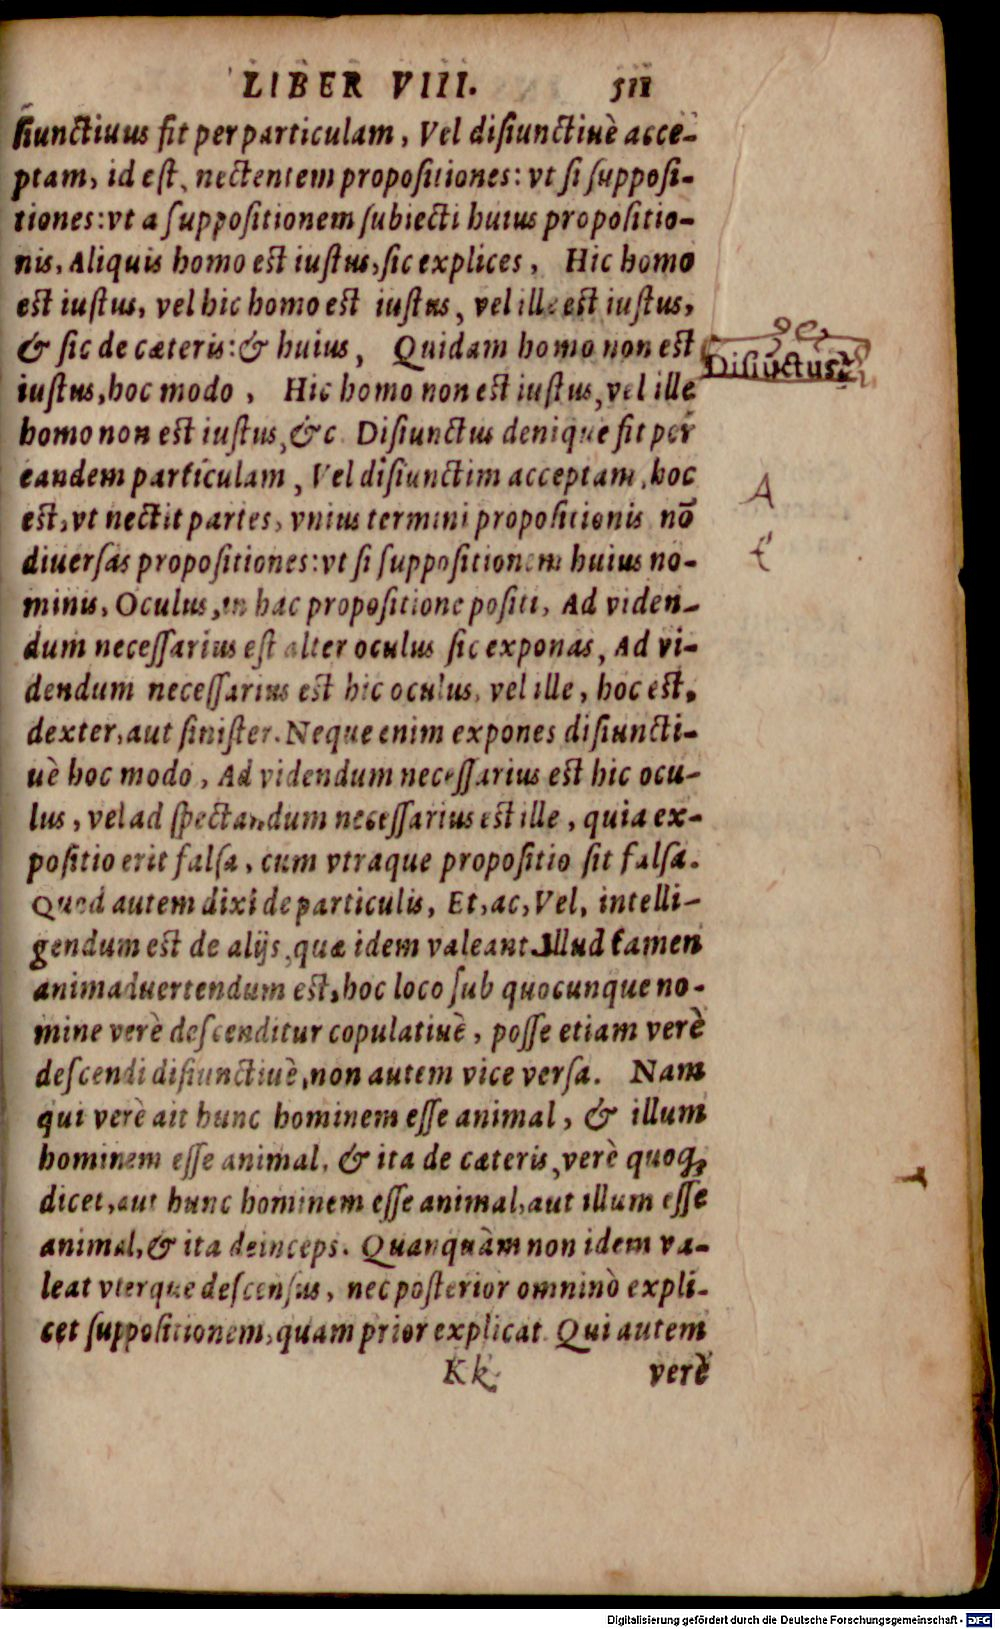 LIBER VIII. 511
siunctiuus fit per particulam, Vel disiunctiuè acce-
ptam, id est, nectentem propositiones: vt si supposi-
tiones: vt a suppositionem subiecti huius propositio-
nis, Aliquis homo est iustus, sic explices, Hic homo
est iustus, vel hic homo est iustus, vel ille est iustus,
& sic de cæteris: & huius, Quidam homo non est
Disiūctus
iustus, hoc modo, Hic homo non est iustus, vel ille
homo non est iustus, &c. Disiunctus denique fit per
eandem particulam, Vel disiunctim acceptam, hoc
A
est, vt nectit partes, vnius termini propositionis nō
diuersas propositiones: vt si suppositionem huius no-
minis, Oculus, in hac propositione positi, Ad viden-
dum necessarius est alter oculus sic exponas, Ad vi-
dendum necessarius est hic oculus, vel ille, hoc est,
dexter, aut sinister. Neque enim expones disiuncti-
uè hoc modo, Ad videndum necessarius est hic ocu-
lus, vel ad spectandum necessarius est ille, quia ex-
positio erit falsa, cum vtraque propositio sit falsa.
Quod autem dixi de particulis, Et, ac, Vel, intelli-
gendum est de alijs, quæ idem valeant. Illud tamen
animaduertendum est, hoc loco sub quocunque no-
mine verè descenditur copulatiuè, posse etiam verè
descendi disiunctiuè, non autem vice versa. Nam
qui verè ait hunc hominem esse animal, & illum
hominem esse animal, & ita de cæteris, verè quoq;
dicet, aut hunc hominem esse animal, aut illum esse
animal, & ita deinceps. Quanquàm non idem va-
leat vterque descensus, nec posterior omninò expli-
cet suppositionem, quam prior explicat. Qui autem
Kk verè
Digitalisierung gefördert durch die Deutsche Forschungsgemeinschaft - DFG